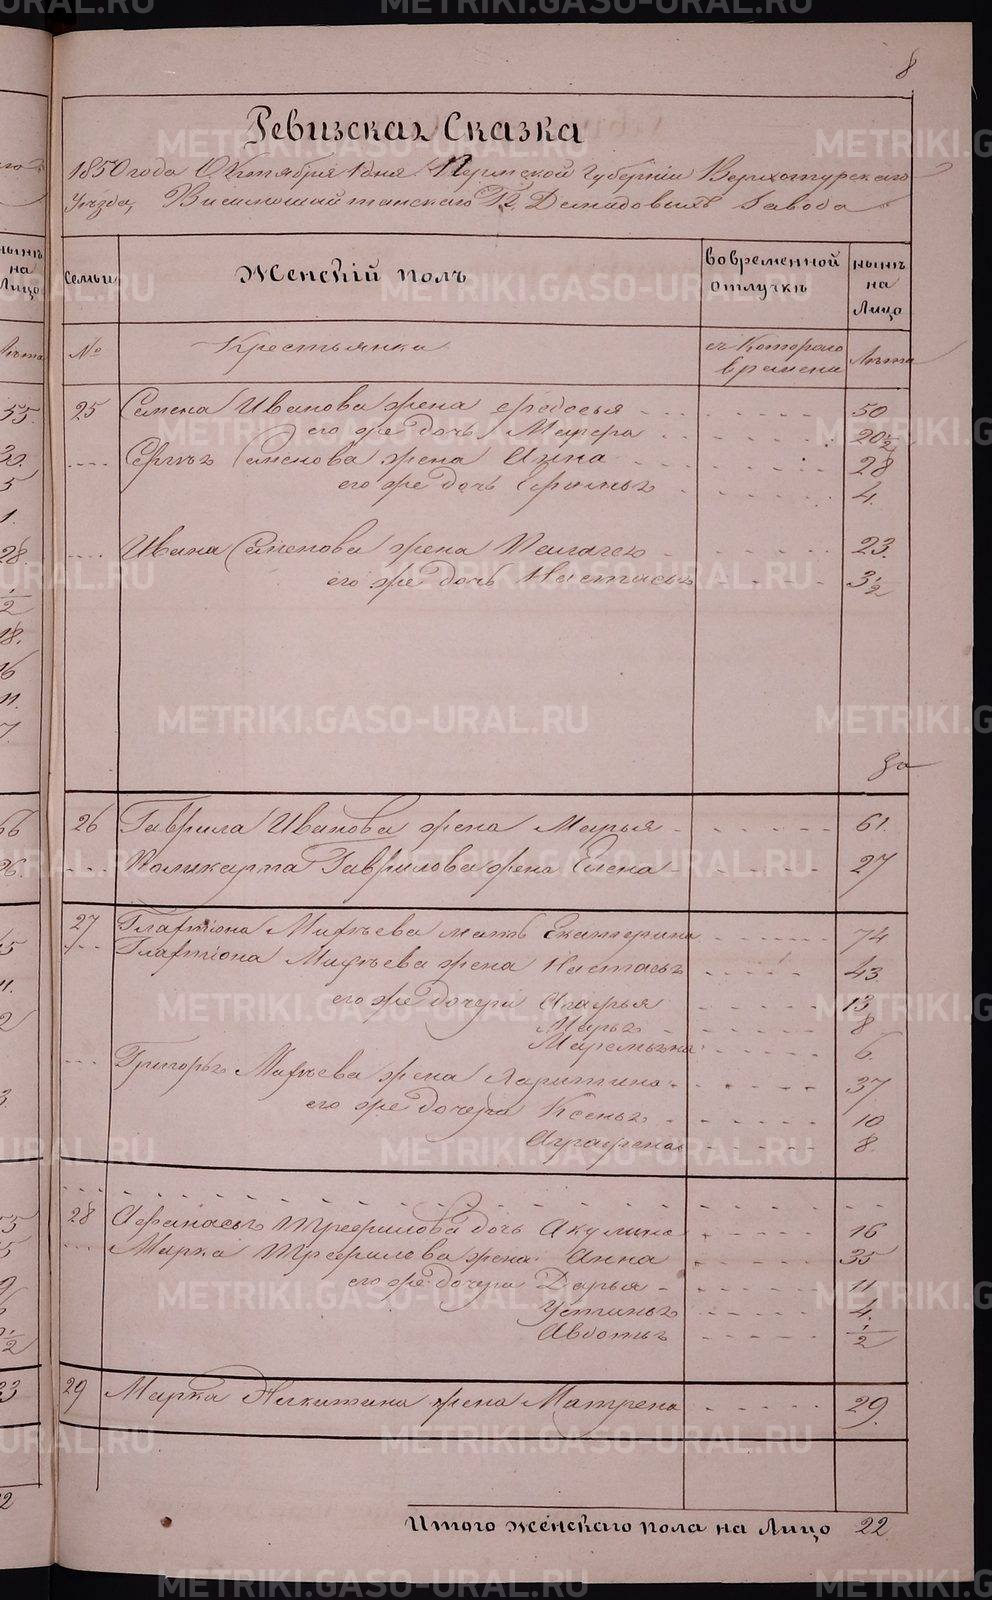 8
Ревизская Сказка
1850 года Октября 1 дня Пермской Губернiи Верхотурскаго
Уѣзда, Висимошайтанскаго Гг. Демидовыхъ Завода
Семьи
Женскiй полъ
Вовременной отлучкѣ
нынѣ на Лицо
№
Крестьянка
съ Котораго времени
Лѣта
25 Семена Иванова жена Федосья 50
его же дочь Мавера 20 1/2
Сергѣя Семенова жена Анна 28
его же дочь 4.
Ивана Семенова жена Палагея 23.
его же дочь Настасья 3 1/2
26 Гаврила Иванова жена Марья 61.
Поликарпа Гаврилова жена Елена 27
27 Галактiона Михѣева мать Екатерина 74
Галактiона Михѣева жена Настасья 43.
его же дочери Агафья 13
Марья 8
Маремьяна 6.
Григорья Михѣева жена Харитина 37
его же дочери Ксенья 10
Аграфена 8.
28 Афанасья Трефилова дочь Акулина 16
Марка Трефилова жена Анна 35
его же дочери Дарья 11
Устинья 4.
Авдотья 1/2
29 Марка Никитина жена Матрена 29.
Итого женскаго пола на Лицо 22
METRIKI.GASO-URAL.RU